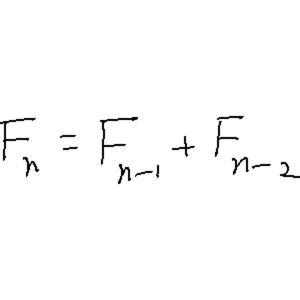 Fₙ = Fₙ₋₁ + Fₙ₋₂